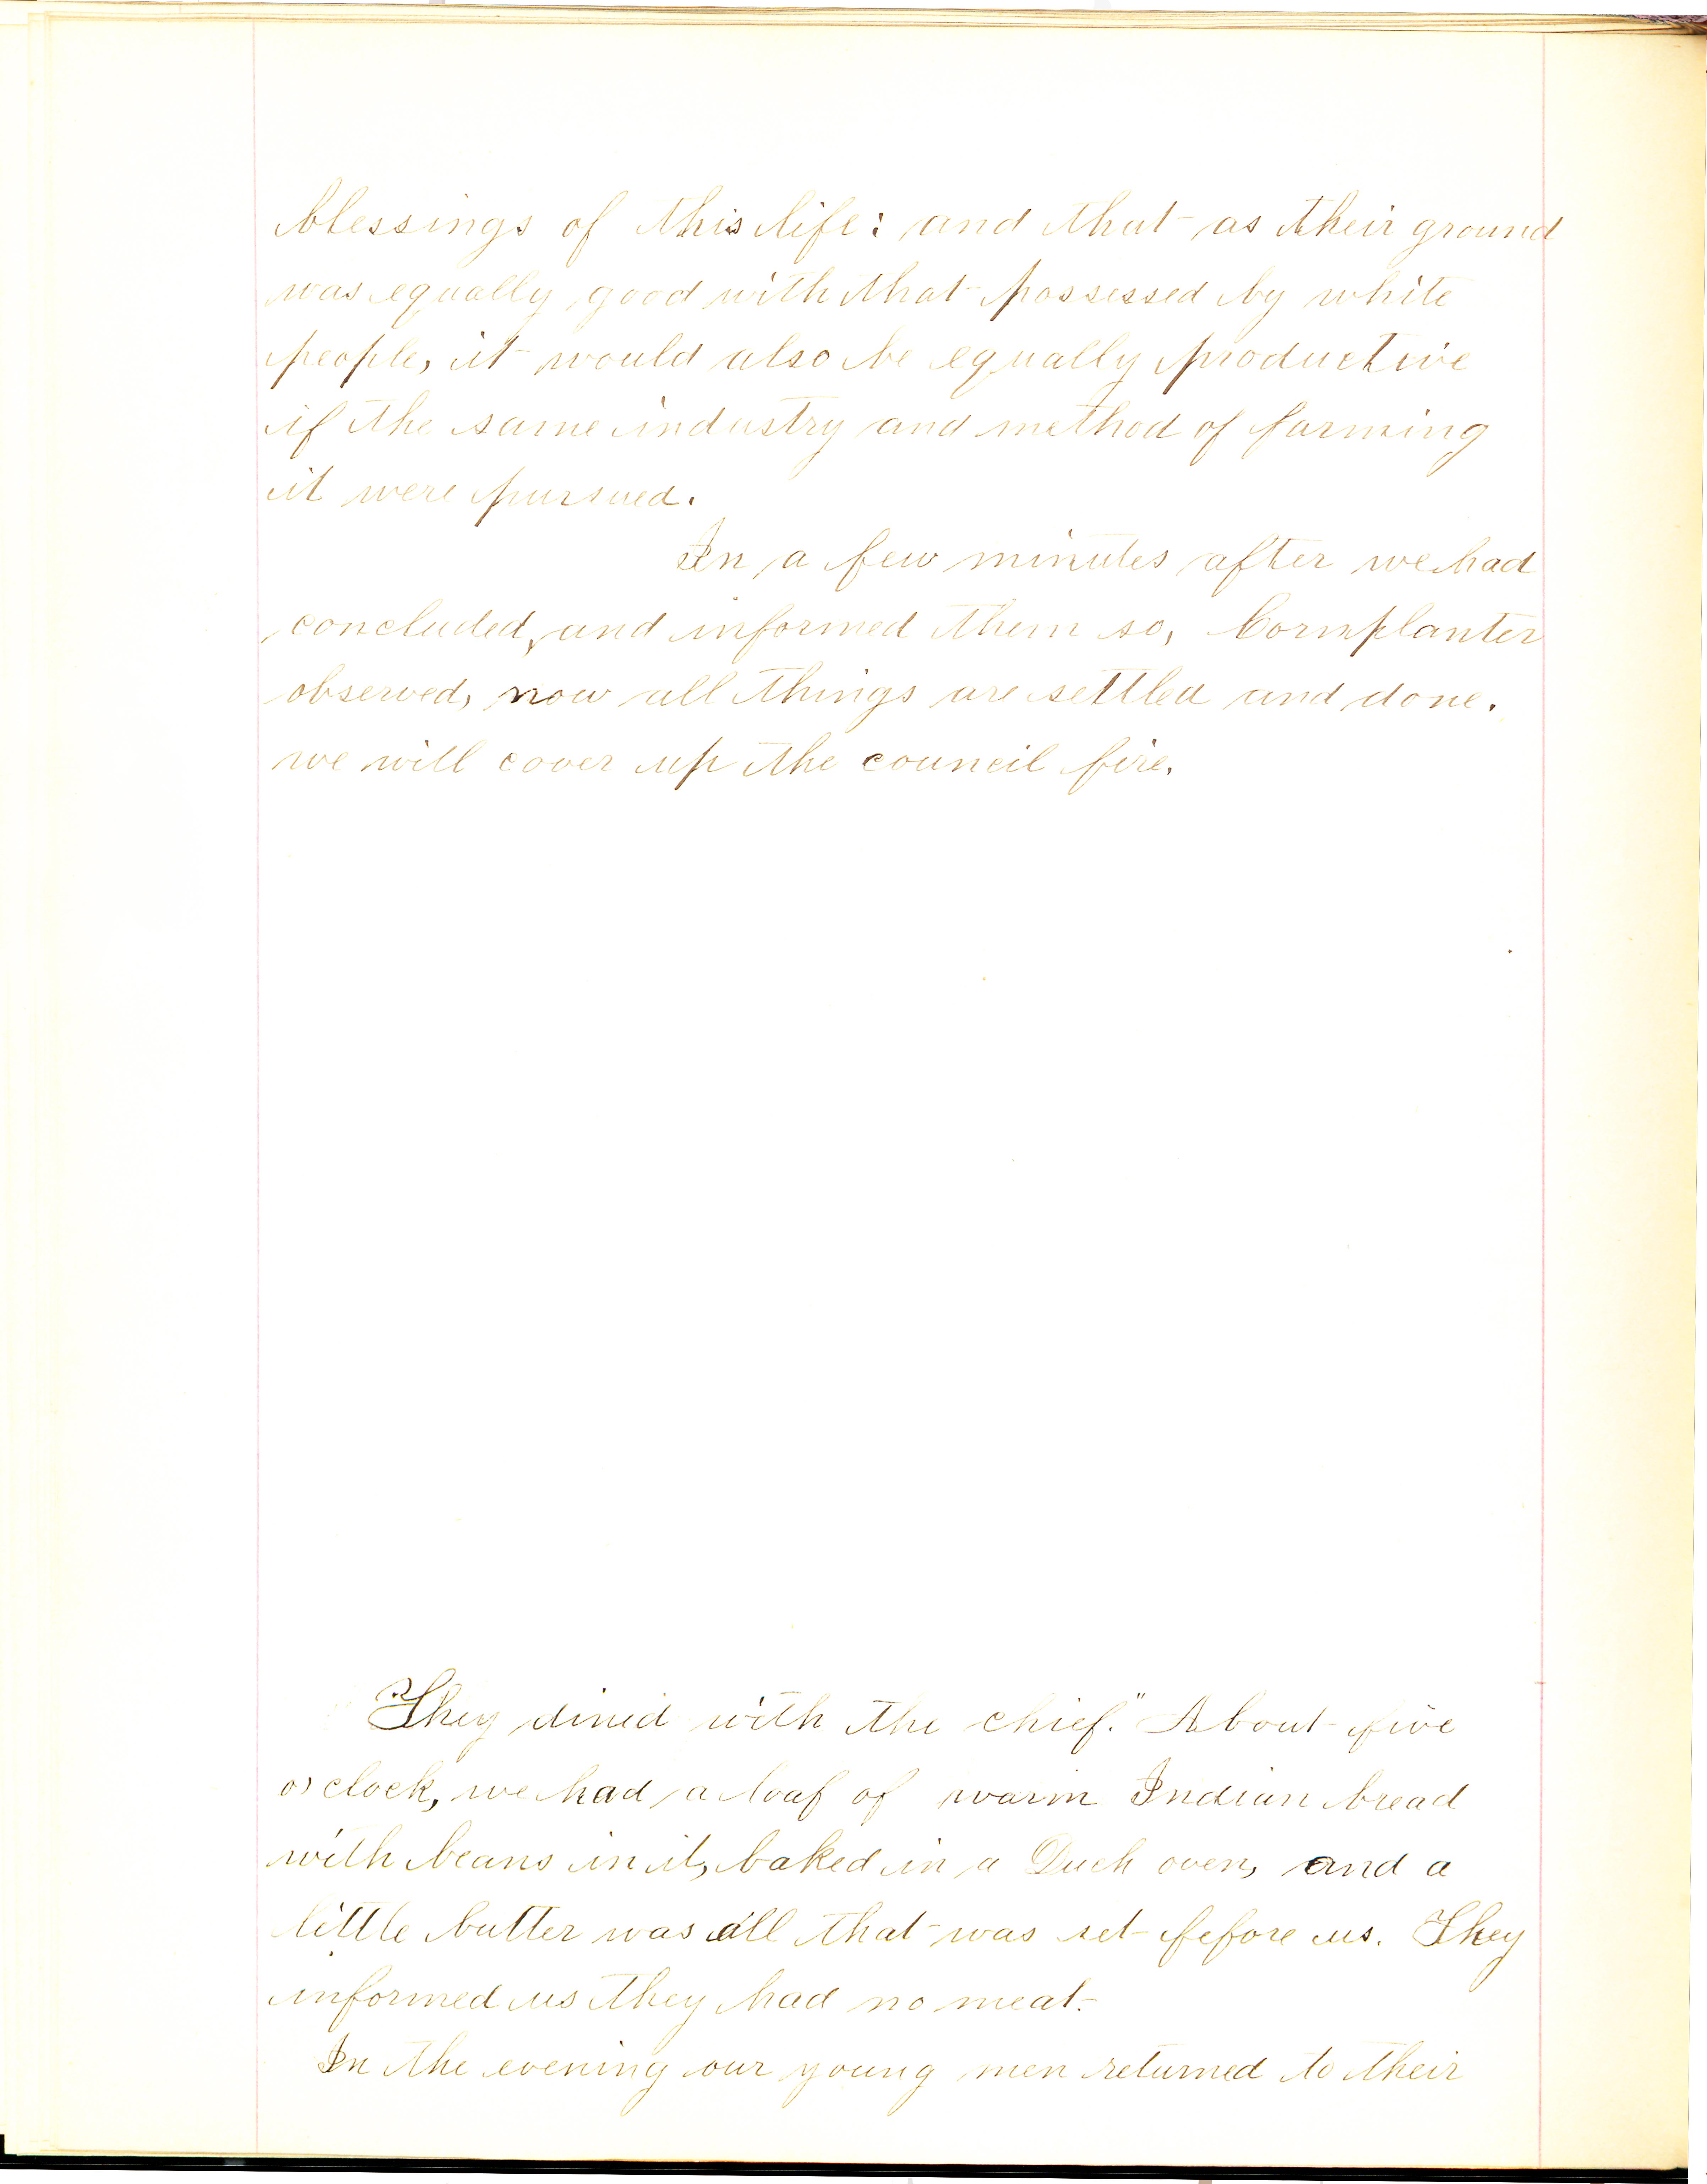 blessings of this life: and that as their ground
was equally good with that possessed by white
people, it would also be equally productive
if the same industry and method of farming
it were pursued.
In a few minutes after we had
concluded, and informed them so, Cornplanter
observed, now all things are settled and done.
we will cover up the council fire.
"They dined with the chief." About five
o'clock, we had a loaf of warm Indian bread
with beans in it, baked in a Duch oven, and a
little butter was all that was set fefore us. They
informed us they had no meat.
In the evening our young men returned to their